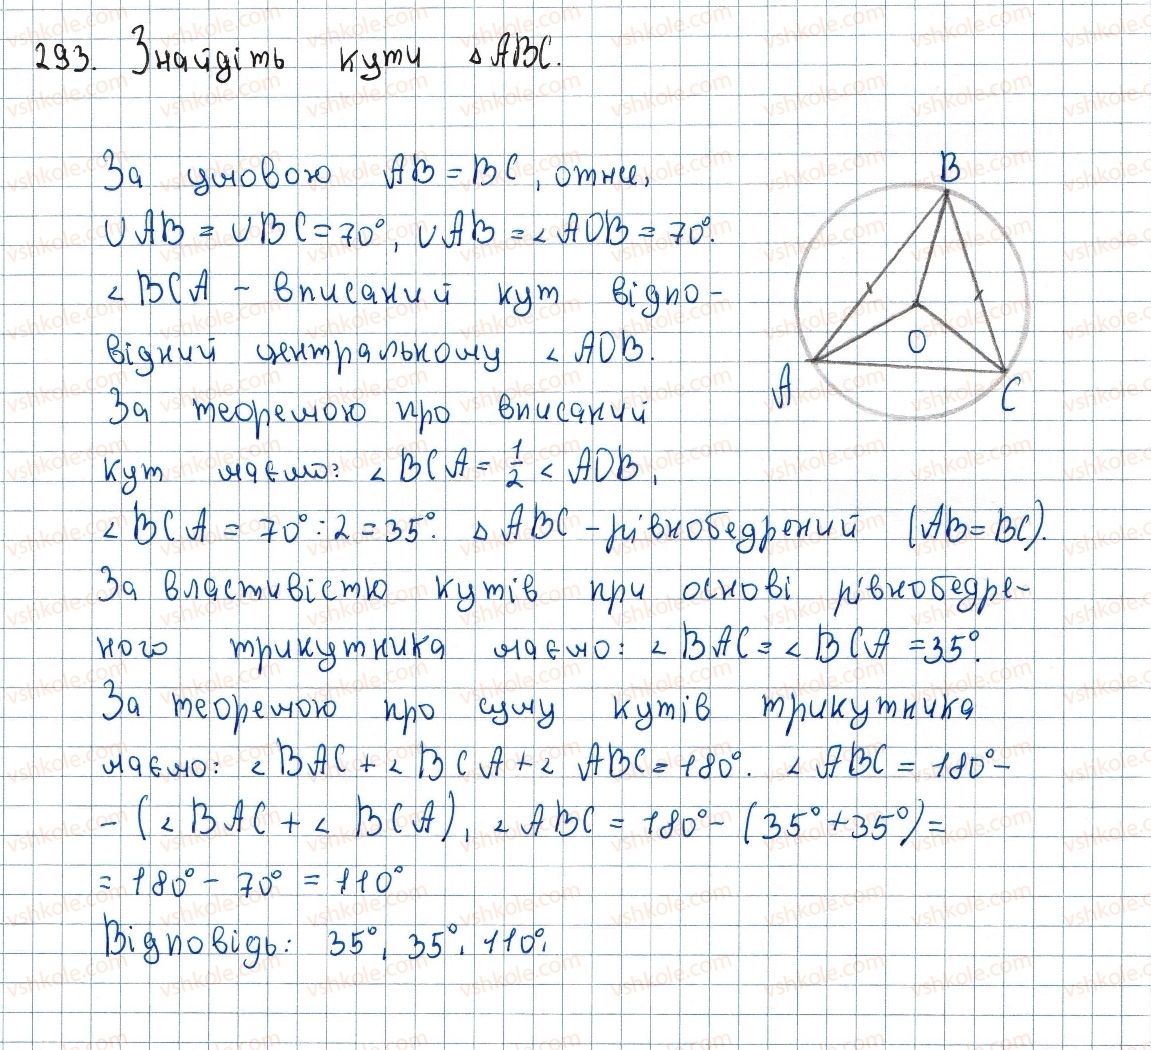 293. Знайдіть кути △ABC.
За умовою AB = BC, отже,
∪AB = ∪BC = 70°, ∪AB = ∠AOB = 70°.
∠BCA - вписаний кут відпо-
відний центральному ∠AOB.
За теоремою про вписаний
кут маємо: ∠BCA = 1/2 ∠AOB,
∠BCA = 70° : 2 = 35°. △ABC - рівнобедрений (AB = BC).
За властивістю кутів при основі рівнобедре-
ного трикутника маємо: ∠BAC = ∠BCA = 35°.
За теоремою про суму кутів трикутника
маємо: ∠BAC + ∠BCA + ∠ABC = 180°. ∠ABC = 180° -
- (∠BAC + ∠BCA), ∠ABC = 180° - (35° + 35°) =
= 180° - 70° = 110°
Відповідь: 35°, 35°, 110°.
B
O
A
C
vshkole.com